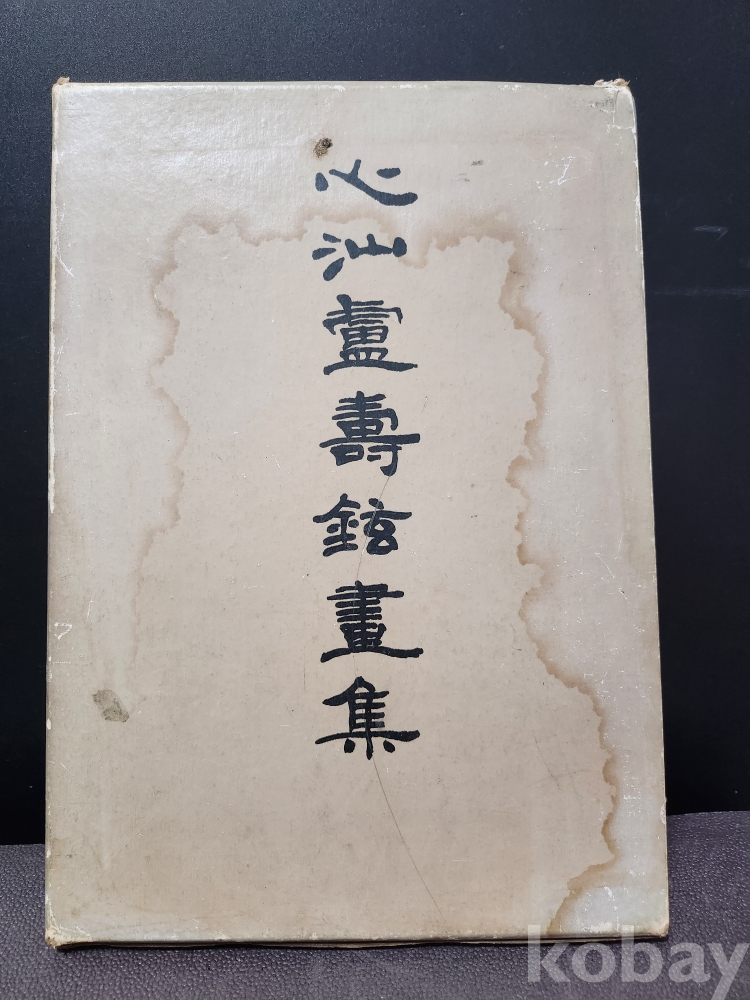 心汕盧壽鉉畫集
kobay